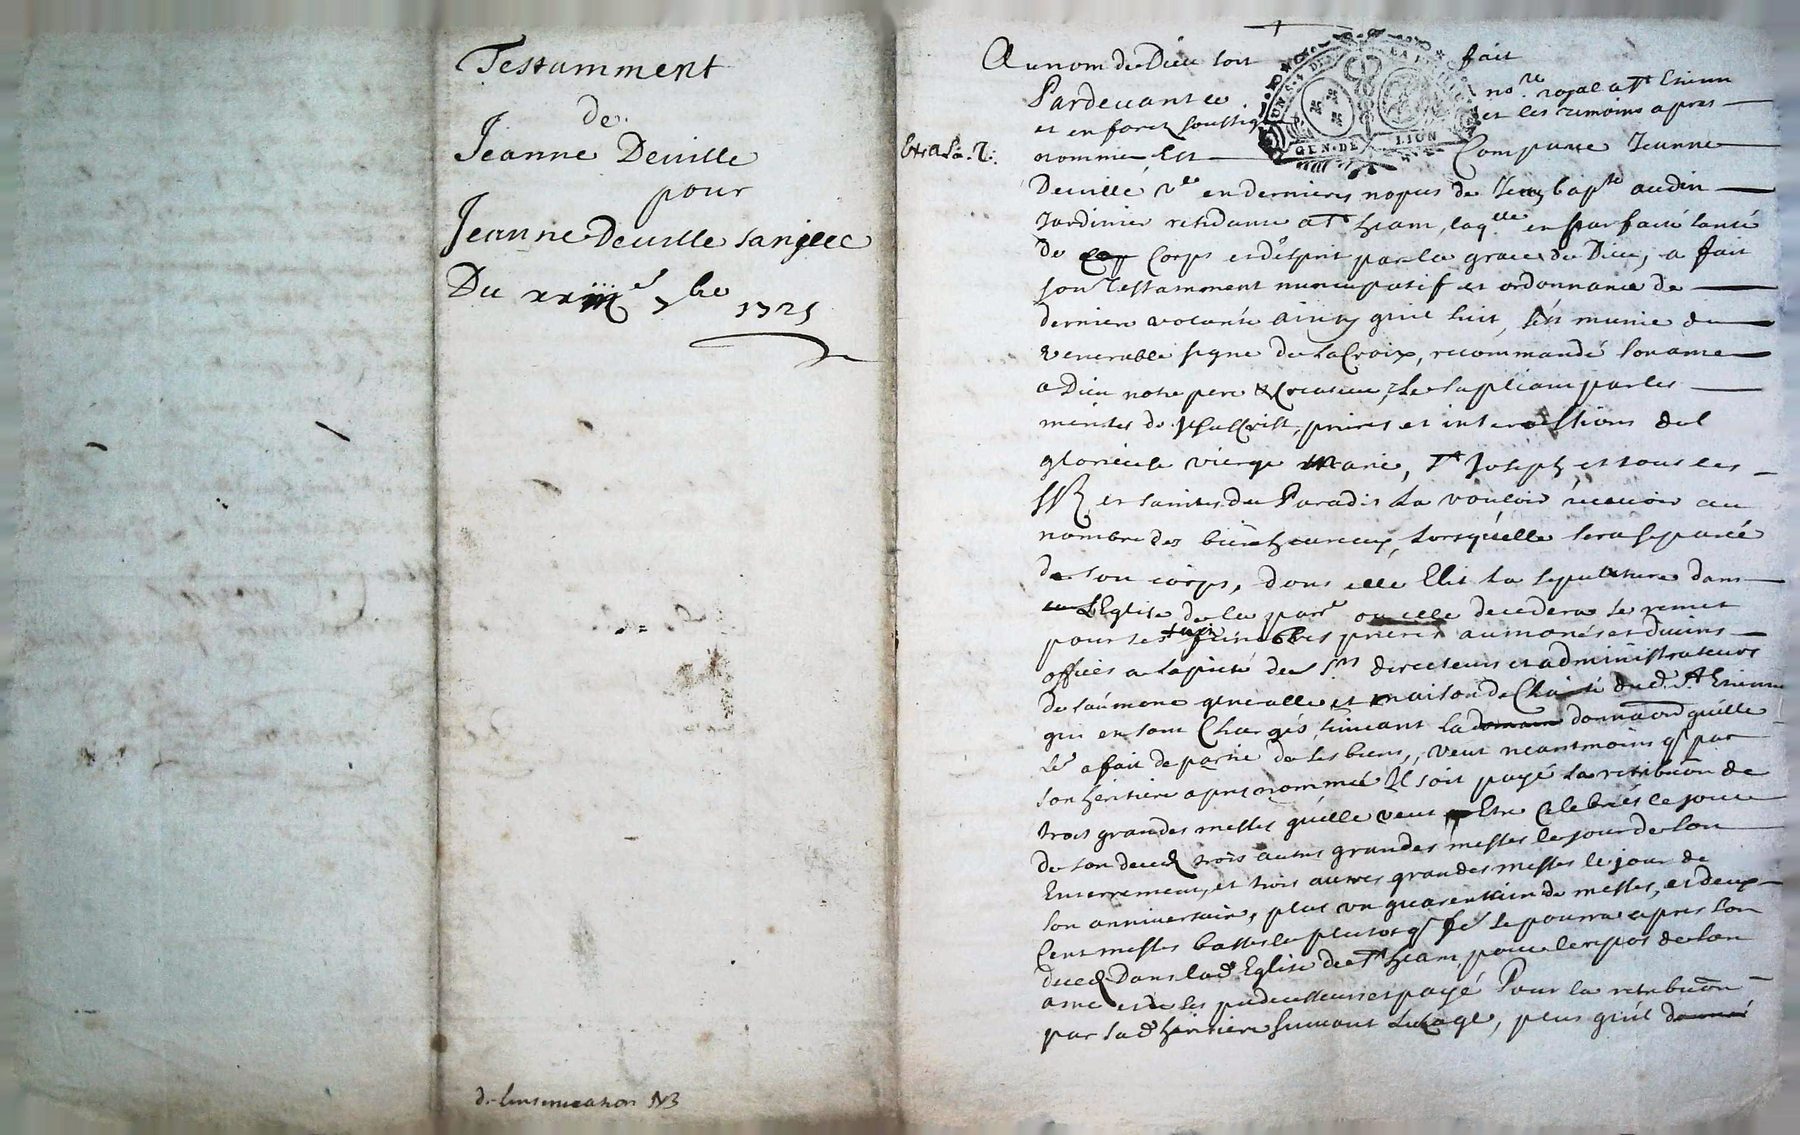 Testamment
de
Jeanne Deville
pour
Jeanne Deville sa niece
Du xxiiije 7bre 1725
de Linsinuation N3
Au nom de Dieu soit fait
Pardevant le nore. royal a St Etienn
et en forez soussig et les temoins apres
nommés Est Comparue Jeanne
Extra La.
GEN. DE LION
Deville ve en dernieres nopces de Jean bapte audin
Jardinier residante a St heam, laqlle en parfaite santé
de Corps et d'esprit par la grace de Dieu, a fait
son Testamment nuncupatif et ordonnance de
derniere volonté ainsy quil suit, s'est munie du
venerable signe de la Croix, recommandé son ame
a Dieu notre pere & Createur, Le supliant par les
merites de Jesus Crist, prieres et intercessions de la
glorieuse vierge Marie, St Joseph et tous les
SSts et saintes du Paradis La vouloir recevoir au
nombre des bienheureux, Lorsquélle sera separée
de son corps, dont elle Elit la sepulture dans
L'Eglise de la parre ou elle decedera se remet
pour ses funebres prieres aumones et divins
offices a la pieté des Srs directeurs et administrateurs
de l'aúmone generalle et maison de Charité dud. St Etienne
qui en sont Chargés, suivant la donnaon quélle
a fait de partie de ses biens, veut neantmoins q. par
son heritiere apres nommée Il soit payé la retribuon de
trois grandes messes quélle veut Etre Celebrées le jour
de son deced trois autres grandes messes le jour de son
Enterrement, et trois autres grandes messes le jour de
son anniversaire, plus un quarentain de messes, et deux
Cent messes basses le plutot q. se pourra apres son
deced Dans lad. Eglise de St heam, pour le repos de son
ame et de ses predecesseurs et payé Pour la retribuon
par lad. heritiere suivant Lusage, plus quil